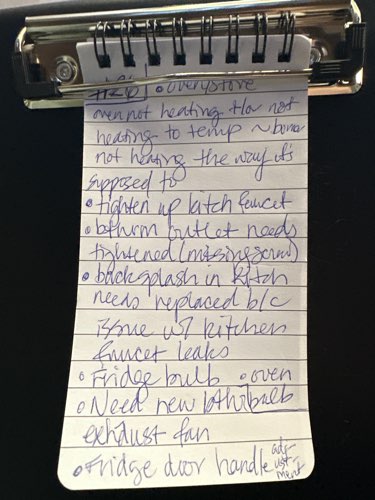 #26 • oven/stove
oven not heating &/or not
heating to temp ~
not heating the way it's
supposed to
• tighten up kitch faucet
• bthrm outlet needs
tightened (missing screw)
• backsplash in kitch
needs replaced b/c
issue w/ kitchen
faucet leaks
• Fridge bulb • oven
• Need new bth bulb
exhaust fan
• Fridge door handle adj-
ust-
ment